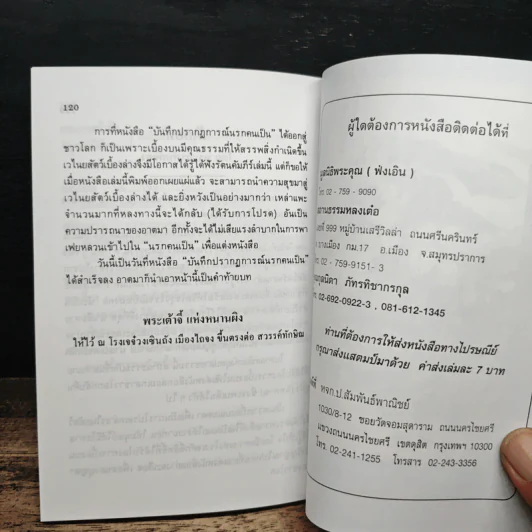 120
การที่หนังสือ “บันทึกปรากฏการณ์นรกคนเป็น” ได้ออกสู่
ชาวโลก ก็เป็นเพราะเบื้องบนมีคุณธรรมที่ให้สรรพสิ่งกำเนิดขึ้น
เวไนยสัตว์เบื้องล่างจึงมีโอกาสได้รู้ได้ฟังรัตนคัมภีร์เล่มนี้ แต่ก็ขอให้
เมื่อหนังสือเล่มนี้พิมพ์ออกเผยแผ่แล้ว จะสามารถนำความสุขมาสู่
เวไนยสัตว์เบื้องล่างได้ และยิ่งหวังเป็นอย่างมากว่า เหล่าแพะ
จำนวนมากที่หลงทางนี้จะได้กลับ (ได้รับการโปรด) อันเป็น
ความปรารถนาของอาตมา อีกทั้งจะได้ไม่เสียแรงลำบากในการพา
เฟยหลวนเข้าไปใน “นรกคนเป็น” เพื่อแต่งหนังสือ
วันนี้เป็นวันที่หนังสือ “บันทึกปรากฏการณ์นรกคนเป็น”
ได้สำเร็จลง อาตมาก็นำเอาหน้านี้เป็นคำท้ายบท
พระเต้าจี้ แห่งหนานผิง
ให้ไว้ ณ โรงเจช่วงเซินถัง เมืองไถจง ขึ้นตรงต่อ สวรรค์ทักษิณ
ผู้ใดต้องการหนังสือติดต่อได้ที่
มูลนิธิพระคุณ ( ฟงเอิน )
โทร 02 - 759 - 9090
สถานธรรมหลงเต๋อ
999 หมู่บ้านเสรีวิลล่า ถนนศรีนครินทร์
บางเมือง กม.17 อ.เมือง จ.สมุทรปราการ
โทร 02 - 759-9151- 3
ภัทรทิชากรกุล
02-692-0922-3 , 081-612-1345
ท่านที่ต้องการให้ส่งหนังสือทางไปรษณีย์
กรุณาส่งแสตมป์มาด้วย ค่าส่งเล่มละ 7 บาท
หจก.ป.สัมพันธ์พาณิชย์
1030/8-12 ซอยวัดจอมสุดาราม ถนนนครไชยศรี
แขวงถนนนครไชยศรี เขตดุสิต กรุงเทพฯ 10300
โทร 02-241-1255 โทรสาร 02-243-3356